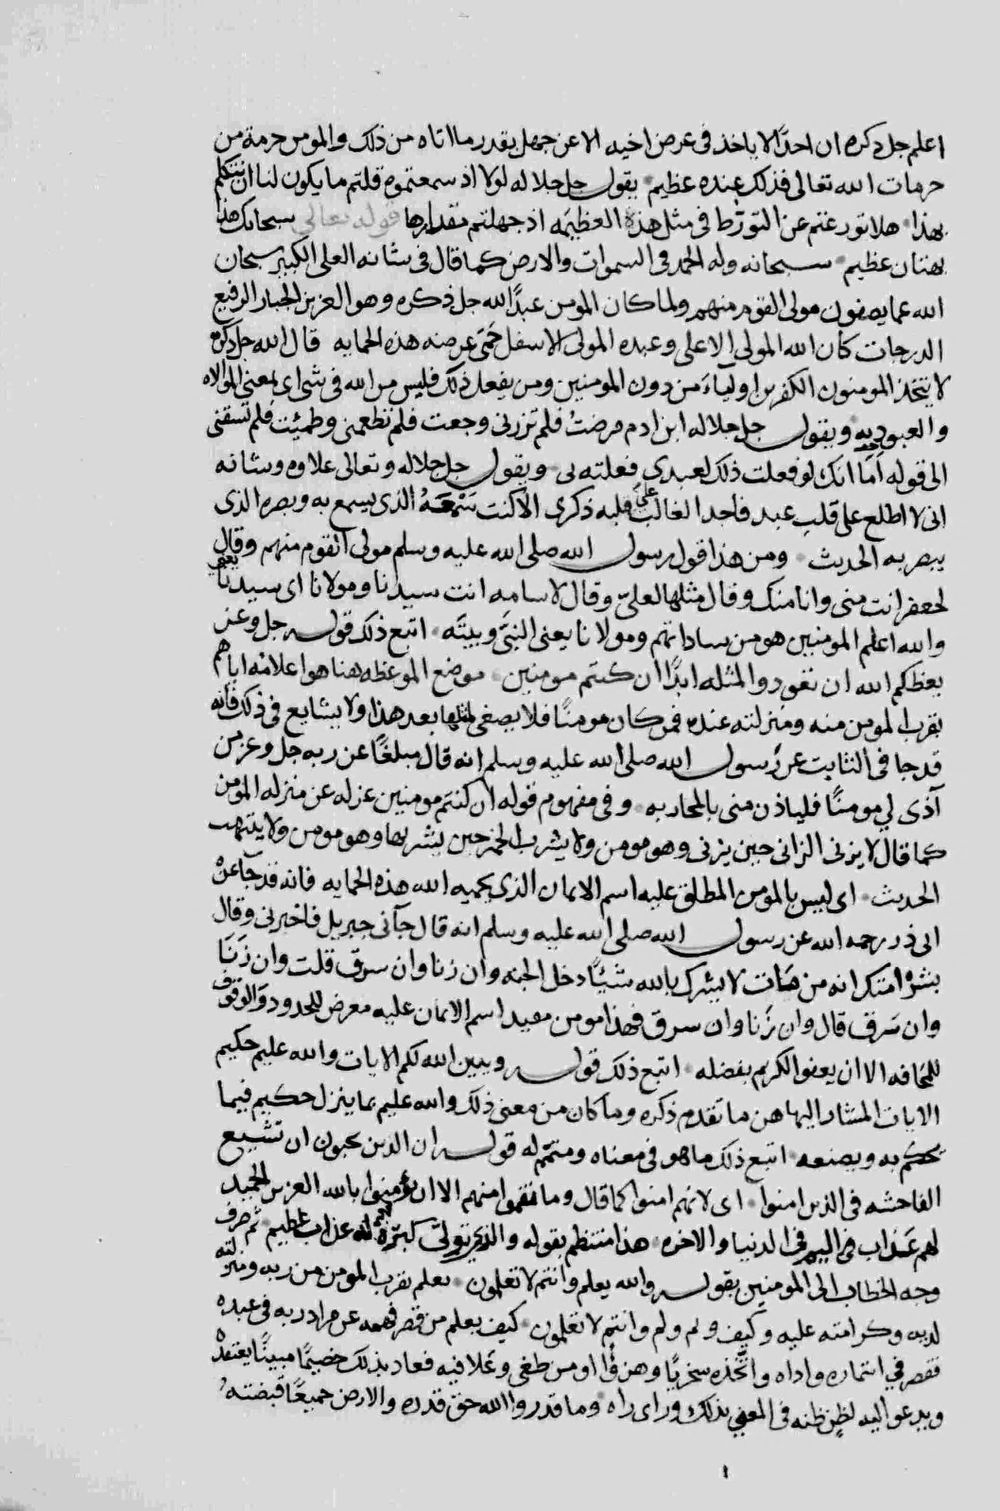 اعلم جل ذكره ان احدًا لا ياخذ في عرض اخيه الا عن جهل بقدر ما اتاه من ذلك والمومن حرمة من
حرمات الله تعالى فذلك عنده عظيم • يقول جل جلاله لولا اذ سمعتموه قلتم ما يكون لنا ان نتكلم
بهذا • هلا تورعتم عن التورّط في مثل هذه العظيمه اذ جهلتم مقدارها قوله تعالى سبحانك هذا
بهتان عظيم • سبحانه وله الحمد في السموات والارض كما قال في شانه العلى الكبير سبحان
الله عما يصفون مولى القوم منهم ولما كان المومن عبدًا لله جل ذكره وهو العزيز الجبار الرفيع
الدرجات كان الله المولى الاعلى وعبده المولى الاسفل حَمَى عرضه هذه الحمايه قال الله جل ذكره
لا يتخذ المومنون الكفرين اولياءَ من دون المومنين ومن يفعل ذلك فليس من الله في شى اى بمعنى الموالاه
والعبوديه ويقول جل جلاله ابن ادم مرضتُ فلم تزرنى وجعت فلم تطعمنى وظمئِت فلم تسقنى
الى قوله اَما انك لو فعلت ذلك لعبدى فعلته بى • ويقول جل جلاله وتعالى علاوه وشانه
انى لا اطلع على قلب عبد فاجد الغالب على قلبه ذكرى الا كنت سَمْعَهُ الذى يسمع به وبصره الذى
يبصر به الحديث • ومن هذا قول رسول الله صلى الله عليه وسلم مولى القوم منهم وقال
لجعفر انت منى وانا منك وقال مثلها لعلىّ وقال لاسامه انت سيدنا ومولانا اى سيدنا يعنى
والله اعلم المومنين هو من ساداتهم ومولانا يعنى النبىَّ وبيتَه • اتبع ذلك قوله جل وعز
يعظكم الله ان تعودوا لمثله ابدًا ان كنتم مومنين • موضع الموعظه هنا هو اعلامه اياهم
بقرب المومن منه ومنزلته عنده فمن كان مومنًا فلا يصغى لمثلها بعد هذا ولا يشايع في ذلك فانه
قد جا في الثابت عن رسول الله صلى الله عليه وسلم انه قال مبلغًا عن ربه جل وعز من
آذى لي مومنًا فلياذن منى بالمحاربه • وفى مفهوم قوله ان كنتم مومنين عزله عن منزله المومن
كما قال لا يزنى الزانى حين يزنى وهو مومن ولا يشرب الخمر حين يشربها وهو مومن ولا ينتهب
الحديث • اى ليس بالمومن المطلق عليه اسم الايمان الذى يحميه الله هذه الحمايه فانه قد جآ عن
ابى ذر رحمه الله عن رسول الله صلى الله عليه وسلم انه قال جآنى جبريل فاخبرنى وقال
بشّر امتك انه من مَات لا يشرك بالله شيئًا دخل الجنه وان زنا وان سرق قلت وان زَنَا
وان سَرق قال وان زَنا وان سرق فهذا مومن مقيد اسم الايمان عليه معرض للحدود والوقوف
للمخافه الا ان يعفو الكريم بفضله • اتبع ذلك قوله ويبين الله لكم الايات والله عليم حكيم
الايات المشار اليها هن ما تقدم ذكره وما كان من معنى ذلك والله عليم بما ينزل حكيم فيما
يحكم به ويصنعه • اتبع ذلك ما هو في معناه ومتمم له قوله ان الذين يحبون ان تشيع
الفاحشه في الذين امنوا • اى لانهم امنوا كما قال وما نقموا منهم الا ان يؤمنوا بالله العزيز الحميد
لهم عذاب اليم في الدنيا والاخره • هذا منتظم بقوله والذى تولى كبره منهم له عذاب عظيم • ثم صرف
وجه الخطاب الى المومنين بقوله والله يعلم وانتم لا تعلمون • يعلم بقرب المومن من ربه ومنزلته
لديه وكرامته عليه وكيف ولم ولم وانتم لا تعلمون • كيف يعلم من قصر فهمه عن مراد ربه في عبده
فقصر في ائتماره واداه واتَّخذه سخريًا وهزؤًا او من طغى وغلا فيه فعاد بذلك خصيمًا مبينًا يعتقده
ويدعو اليه لظنٍ ظنه في المعنى بذلك وراى راه • وما قدروا الله حق قدره والارض جميعًا قبضته